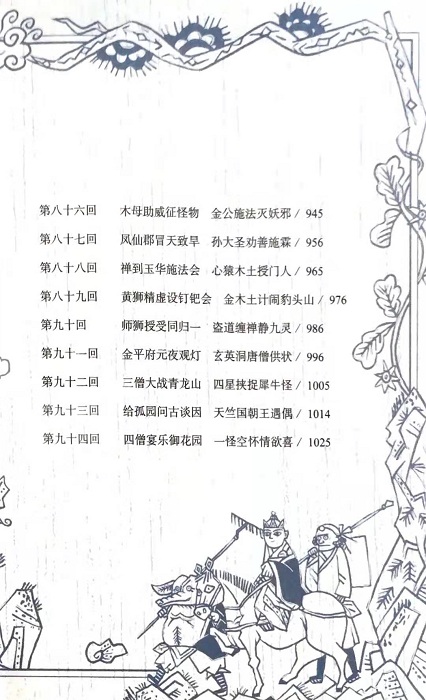 第八十六回 木母助威征怪物 金公施法灭妖邪 / 945
第八十七回 凤仙郡冒天致旱 孙大圣劝善施霖 / 956
第八十八回 禅到玉华施法会 心猿木土授门人 / 965
第八十九回 黄狮精虚设钉钯会 金木土计闹豹头山 / 976
第九十回 师狮授受同归一 盗道缠禅静九灵 / 986
第九十一回 金平府元夜观灯 玄英洞唐僧供状 / 996
第九十二回 三僧大战青龙山 四星挟捉犀牛怪 / 1005
第九十三回 给孤园问古谈因 天竺国朝王遇偶 / 1014
第九十四回 四僧宴乐御花园 一怪空怀情欲喜 / 1025